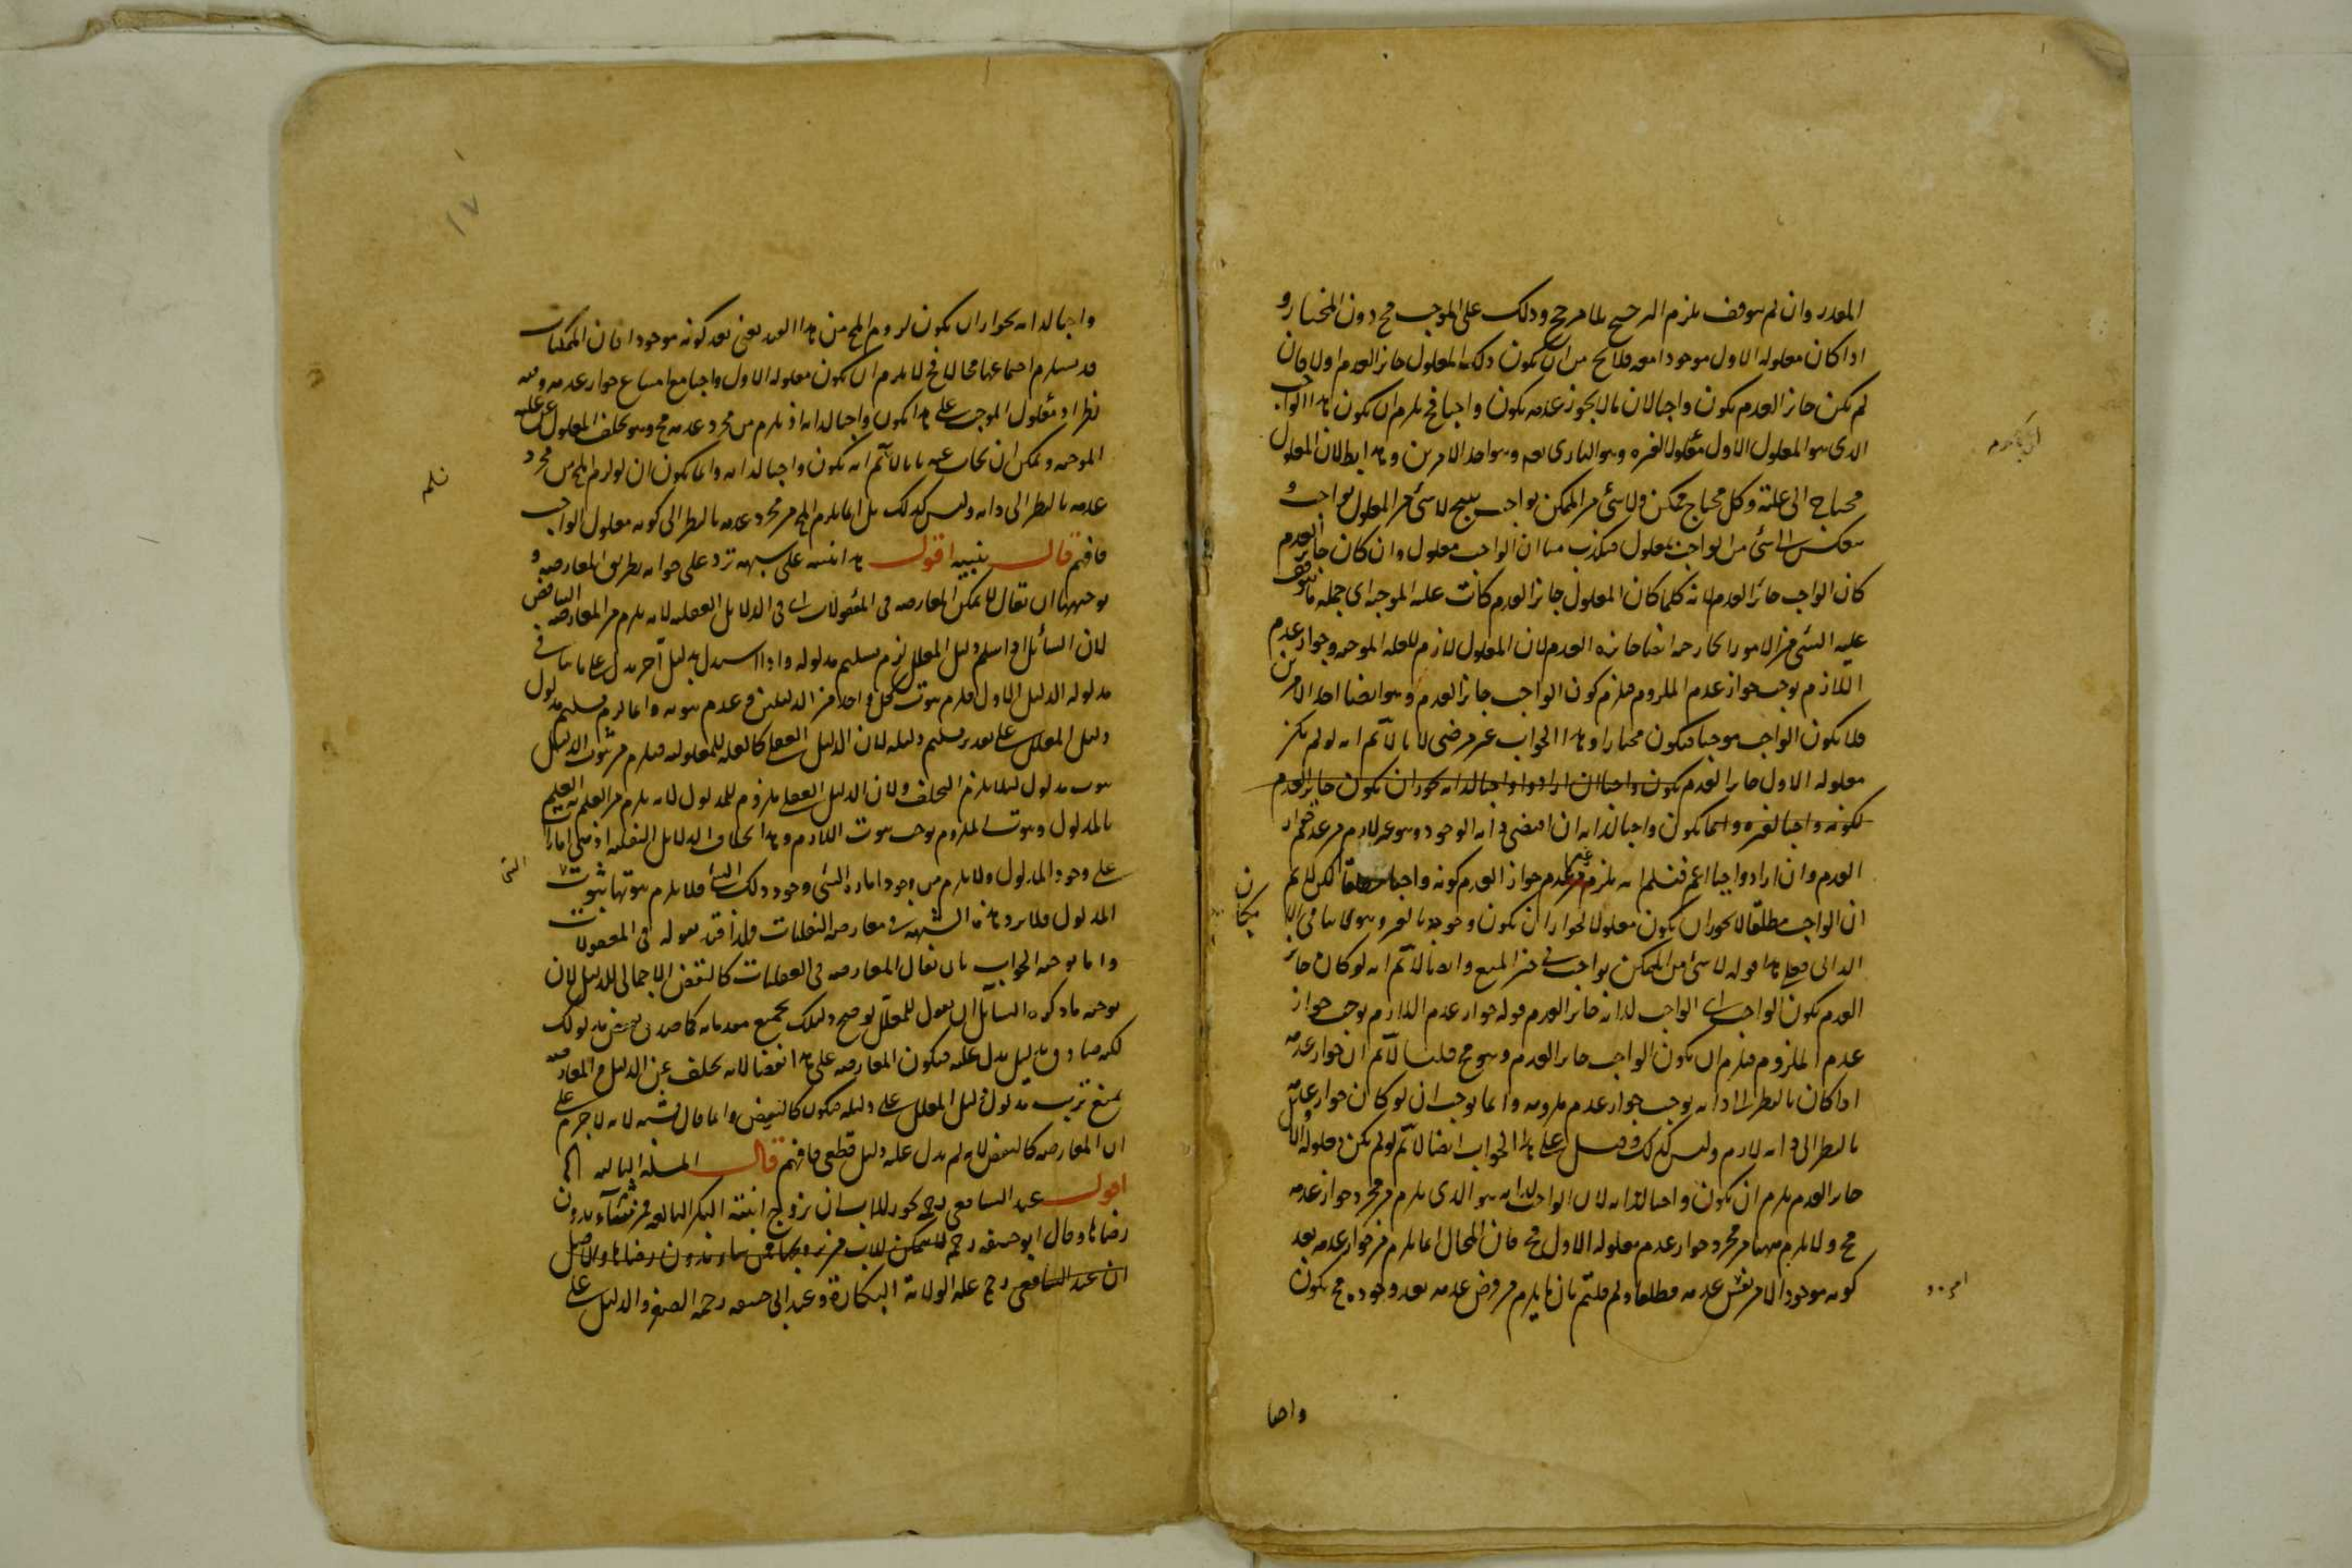 المقدر وان لم يتوقف يلزم الترجيح بلا مرجح وذلك على الموجب مح دون المختار و
اذا كان معلوله الاول موجودا معه فلا يخ من ان يكون ذلك المعلول جائز العدم اولا فان
لم يكن جائز العدم يكون واجبا لان ما لا يجوز عدمه يكون واجبا فح يلزم ان يكون هذا الواجب
الذى هو المعلول الاول معلولا لغيره وهو البارى تعم وهو احد الامرين وهذا بط لان المعلول
محتاج الى علته وكل محتاج ممكن ولا شئ من الممكن بواجب ينتج لا شئ من المعلول بواجب و
ينعكس لا شئ من الواجب بمعلول فيكذب منا ان الواجب معلول وان كان جائز العدم
كان الواجب جائز العدم لانه كلما كان المعلول جائز العدم كانت علته الموجبة اى جملة ما يتوقف
عليه الشئ من الامور الخارجه ايضا جائزه العدم لان المعلول لازم للعلة الموجبه وجواز عدم
اللازم يوجب جواز عدم الملزوم فيلزم كون الواجب جائز العدم وهو ايضا احد الامرين
فلا يكون الواجب موجبا فيكون مختارا وهذا الجواب غير مرضى لانا لا نم انه لو لم يكن
معلوله الاول جائز العدم يكون واجبا ان ارادوا واجبا لذاته لجواز ان يكون جائز العدم
لكونه واجبا لغيره وانما يكون واجبا لذاته ان اقتضى ذاته الوجود وهو غير لازم من عدم جواز
العدم وان ارادوا واجبا اعم فنسلم انه يلزم من عدم جواز العدم كونه واجبا مطلقا لكن لا نم
ان الواجب مطلقا لا يجوز ان يكون معلولا لجواز ان يكون وجوبه بالغير وهو لا ينافى
الذاتى فعلى هذا قوله لا شئ من الممكن بواجب فى حيز المنع وايضا لا نم انه لو كان جائز
العدم يكون الواجب اى الواجب لذاته جائز العدم قوله جواز عدم اللازم يوجب جواز
عدم الملزوم فيلزم ان يكون الواجب جائز العدم وهو مح قلنا لا نم ان جواز عدمه
اذا كان بالنظر الى ذاته يوجب جواز عدم ملزومه وانما يوجب ان لو كان جواز عدمه
بالنظر الى ذاته لازم وليس كذلك وقيل على هذا الجواب ايضا لا نم لو لم يكن معلوله الاول
جائز العدم يلزم ان يكون واجبا لذاته لان الواجب لذاته هو الذى يلزم من مجرد جواز عدمه
مح ولا يلزم ههنا من مجرد جواز عدم معلوله الاول مح فان المحال انما يلزم من جواز عدمه بعد
كونه موجودا لا من نفس عدمه مطلقا ولم قلتم بان ما يلزم من فرض عدمه بعد وجوده مح يكون
واجبا
واجبا لذاته لجواز ان يكون لزوم المح من هذا القيد يعنى بعد كونه موجودا فان الممكنات
قد يستلزم اجتماعها محالا فح لا يلزم ان يكون معلوله الاول واجبا مع امتناع جواز عدمه وفيه
نظر اذ معلول الموجب على هذا يكون واجبا لذاته اذ يلزم من مجرد عدمه مح وهو تخلف المعلول عن علته
الموجبه ويمكن ان يجاب عنه بانا لا نم انه يكون واجبا لذاته وانما يكون ان لو لزم المح من مجرد
عدمه بالنظر الى ذاته وليس كذلك بل انما يلزم المح من مجرد عدمه بالنظر الى كونه معلول الواجب
فافهم قال تنبيه اقول هذا تنبيه على شبهه ترد على جوابه بطريق المعارضه و
توجيهها ان يقال لا يمكن المعارضه فى المعقولات اى فى الدلايل العقليه لانه يلزم من المعارضه التناقض
لان السائل اذا سلم دليل المعلل لزم تسليم مدلوله واذا استدل بدليل آخر يدل على ما ينافى
مدلوله الدليل الاول فلزم ثبوت كل واحد من الدليلين وعدم ثبوته وانما لزم تسليم مدلول
دليل المعلل على تقدير تسليم دليله لان الدليل العقلى كالعلة للمعلوله فيلزم من ثبوت الدليل
ثبوت مدلول لئلا يلزم التخلف ولان الدليل العقلى ملزوم للمدلول لانه يلزم من العلم به العلم
بالمدلول وثبوت الملزوم يوجب ثبوت اللازم وهذا بخلاف الدلايل النقليه اذ هى امارات
على وجود المدلول ولا يلزم من وجود امارة الشئ وجود ذلك الشئ فلا يلزم من ثبوتها ثبوت
المدلول فلا يرد هذه الشبهة فى معارضه النقليات فلذا قيد بقوله فى المعقولات
واما توجيه الجواب بان يقال المعارضه فى العقليات كالنقض الاجمالى للدليل لان
توجيه ما ذكره السائل ان يقول للمعلل لو صح دليلك بجميع مقدماته كما صدق نقيض مدلولك
لكنه صادق بدليل يدل عليه فيكون المعارضه على هذا نقضا لانه تخلف عن الدليل والمعارضه
يمنع ترتب مدلول دليل المعلل على دليله فيكون كالنقض وانما قال تشبه لانه لا جزم على
ان المعارضه كالنقض لانه لم يدل عليه دليل قطعى فافهم قال المسئلة الثالثه الخ
اقول عند الشافعى رحمه يجوز للاب ان يزوج ابنته البكر البالغه ممن شاء بدون
رضاها وقال ابو حنيفه رحمه لا يتمكن للاب من تزويجها ممن شاء بدون رضاها والاصل
ان عند الشافعى رحمه علة الولاية البكارة وعند ابى حنيفه رحمه الصغر والدليل على